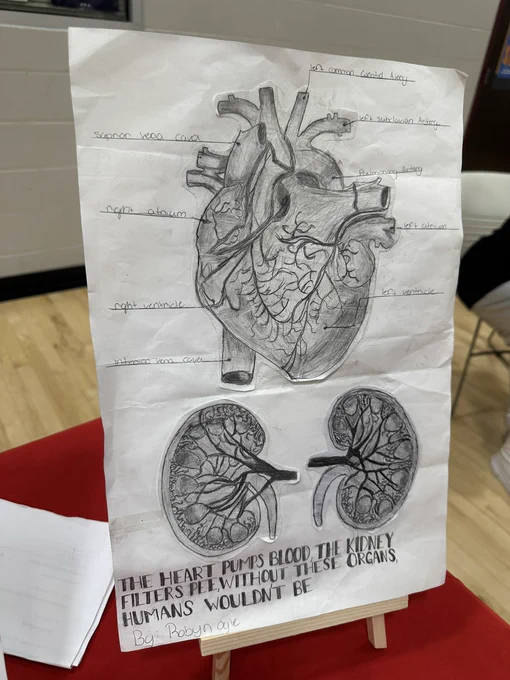 left common carotid Artery
left subclavian Artery
suprior vena cava
Pulmonary Artery
right atrium
left atrium
right ventricle
left ventricle
vena cava
THE HEART PUMPS BLOOD, THE KIDNEY
FILTERS PEE, WITHOUT THESE ORGANS,
HUMANS WOULDNT BE
By: Robyn